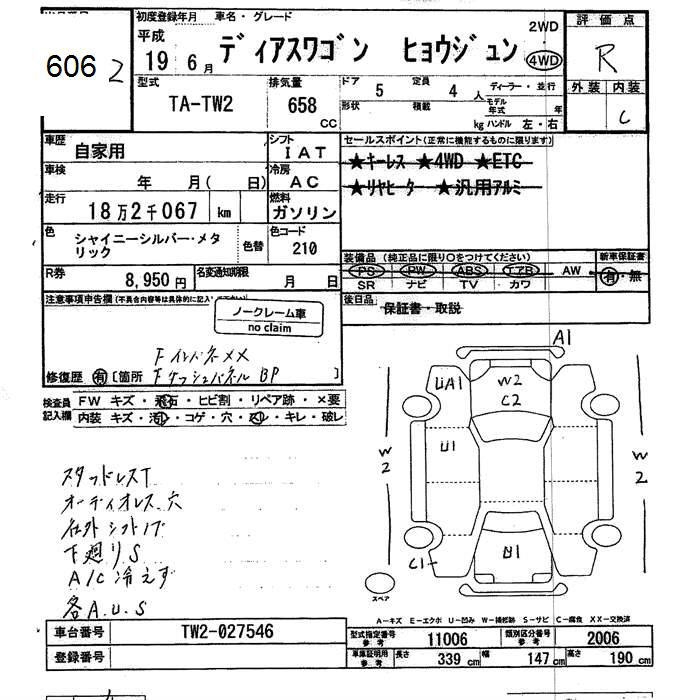 初度登録年月 車名・グレード 2WD 評価点
6062
平成 19 6月 ディアスワゴン ヒョウジュン 4WD R
型式 排気量 ドア 5 定員 4人 ディーラー・並行 外装 内装
TA-TW2 658 CC 形状 積載 kg モデル年式 年 ハンドル 左・右 C
車歴 自家用 シフト IAT セールスポイント(正常に機能するものに限ります)
車検 年 月( 日) 冷房 AC ★キーレス ★4WD ★ETC
走行 18万2千067 km 燃料 ガソリン ★リヤヒーター ★汎用アルミ
色 シャイニーシルバー・メタリック 色替 色コード 210
装備品(純正品に限り○をつけてください) 新車保証書
R券 8,950円 名変通知期限 月 日 PS PW ABS エアB AW 有・無
SR ナビ TV カワ
注意事項申告欄 後日品 保証書・取説
ノークレーム車
no claim
FインパネXX
修復歴 有 [箇所 FダッシュパネルBP ]
検査員記入欄 FW キズ・飛石・ヒビ割・リペア跡・×要
内装 キズ・汚レ・コゲ・穴・スレ・キレ・破レ
A1
UA1 W2
C2
U1
W2 W2
スタッドレスT
オーディオレス穴
社外シフトノブ
下廻りS
A/C冷えず
各A.U.S
U1
C1
スペア
A-キズ E-エクボ U-凹み W-補修跡 S-サビ C-腐食 XX-交換済
車台番号 TW2-027546 型式指定番号 参考 11006 類別区分番号 参考 2006
登録番号 車庫証明用 参考 長さ 339cm 幅 147cm 高さ 190cm